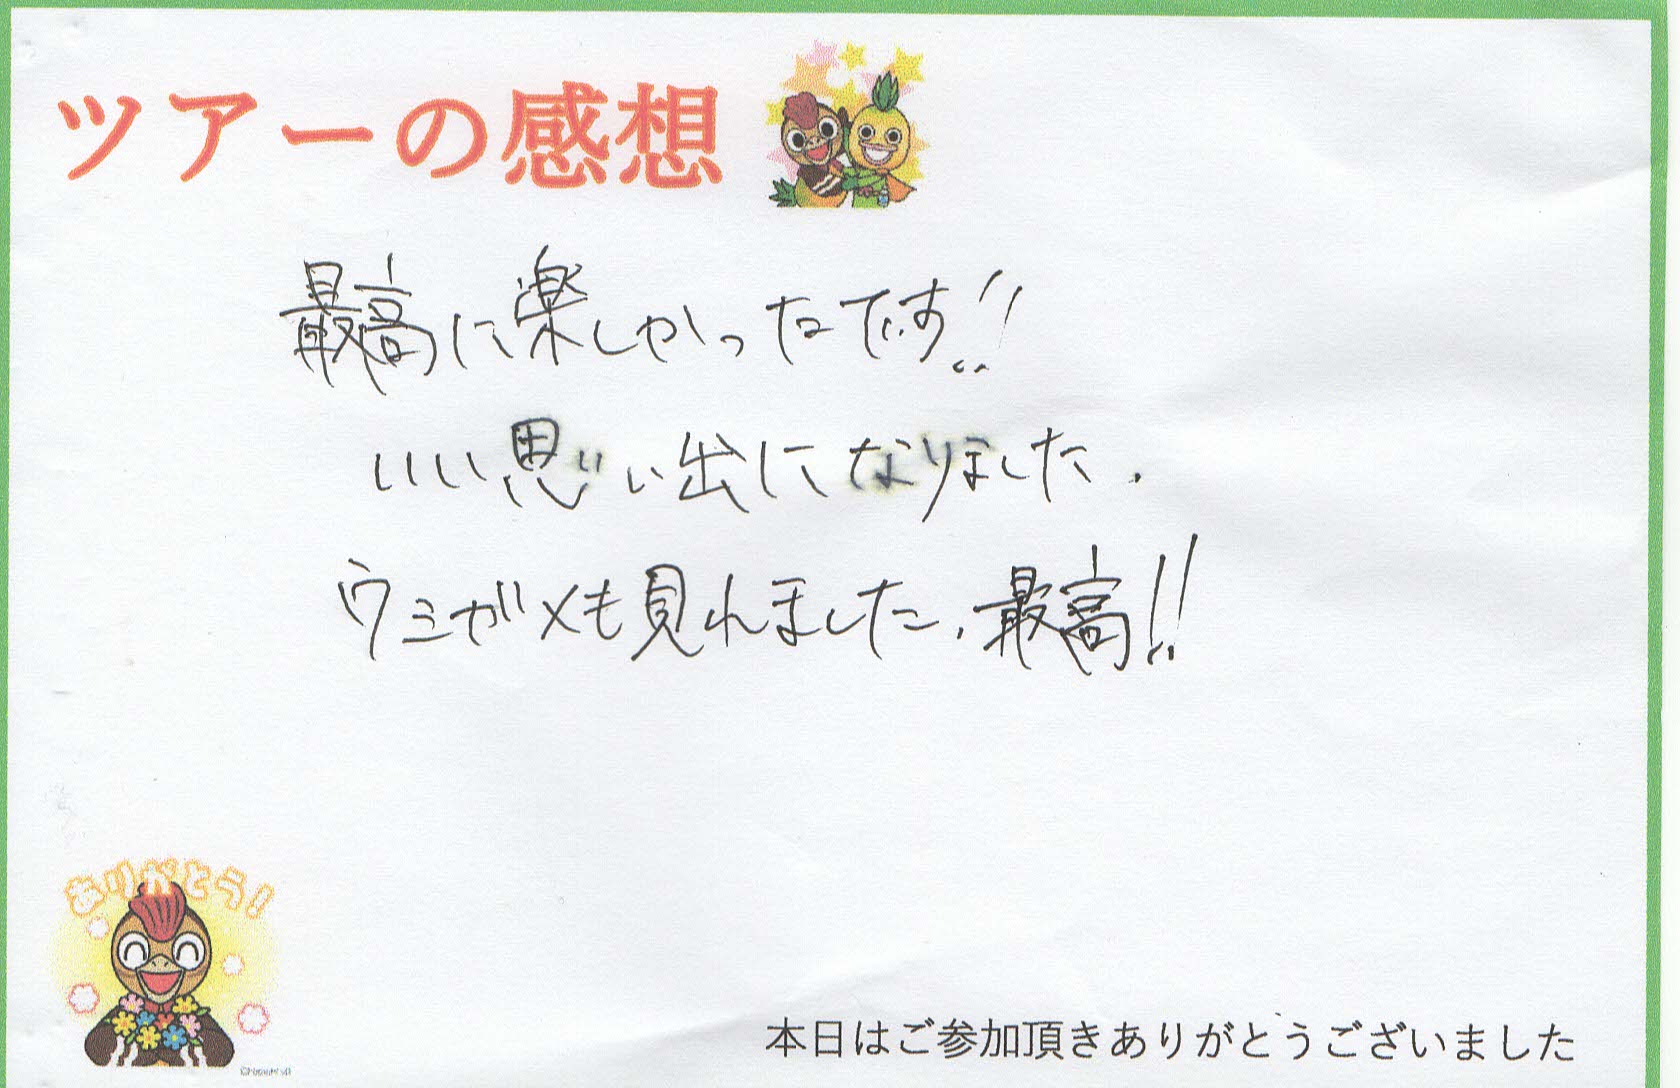 ツアーの感想
最高に楽しかったです!!
いい思い出になりました.
ウミガメも見れました.最高!!
ありがとう!
本日はご参加頂きありがとうございました